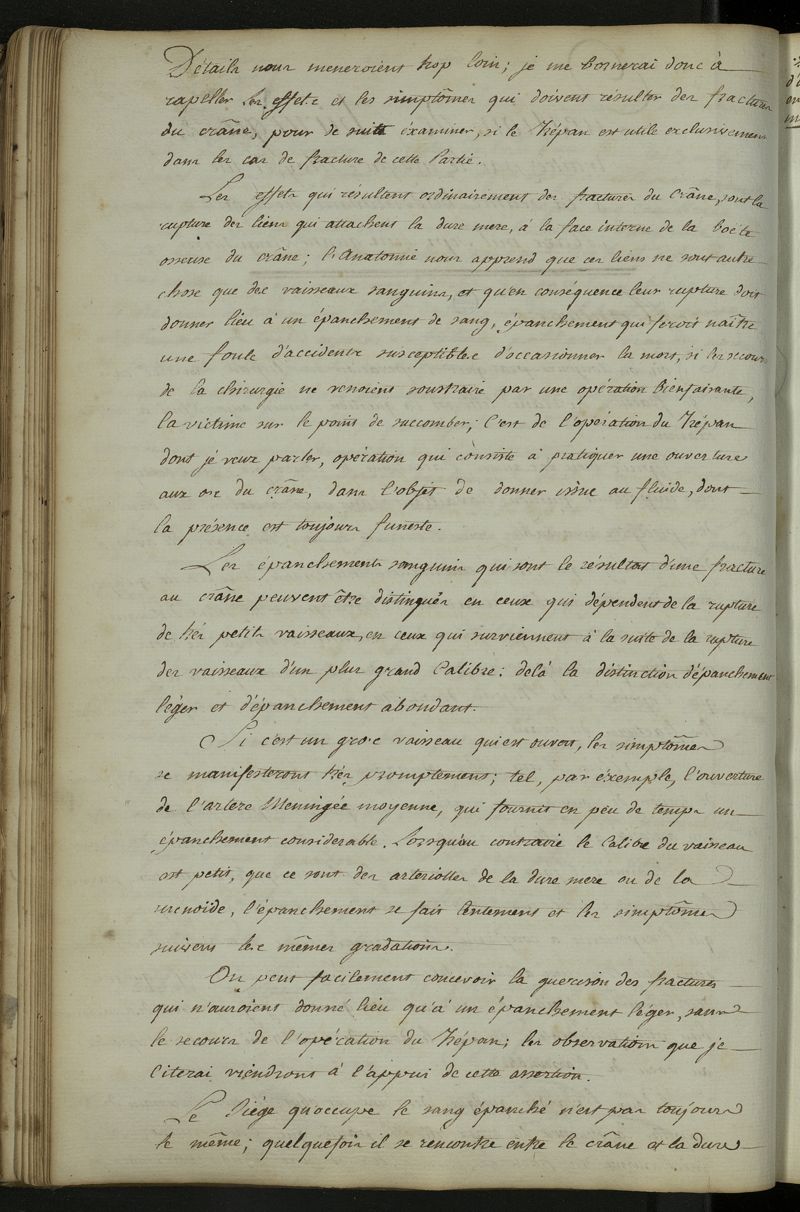 Détails nous meneroient trop loin; je me bornerai donc à
rapeller les effets et les simptômes qui doivent résulter des fractures
du crâne, pour de suite éxaminer, si le trépan est utile exclusivement
dans les cas de fracture de cette Partie.
Les effets qui résultent ordinairement des fractures du Crâne, sont la
rupture des liens qui attachent la dure mere, à la face interne de la boëte
osseuse du crâne; l'Anatomie nous apprend que ces liens ne sont autre
chose que des vaisseaux sanguins, et qu'en conséquence leur rupture doit
donner lieu à un épanchement de sang, épanchement qui feroit naître
une foule d'accidents susceptibles d'occasionner la mort, si les secours
de la chirurgie ne venoient soustraire par une opération bienfaisante,
la victime sur le point de succomber; C'est de l'opération du Trépan
dont je veux parler, opération qui consiste à pratiquer une ouverture
aux os du crâne, dans l'objet de donner issue au fluide, dont
la présence est toujours funeste.
Les épanchements sanguins qui sont le résultat d'une fracture
au crâne peuvent être distingués en ceux qui dépendent de la rupture
de trés petits vaisseaux, en ceux qui surviennent à la suite de la rupture
des vaisseaux d'un plus grand Calibre: delà la distinction d'épanchement
léger et d'épanchement abondant.
Si c'est un gros vaisseau qui est ouvert, les simptômes
se manifesteront trés promptement; tel, par éxemple, l'ouverture
de l'artere Meningée moyenne, qui fournit en peu de temps un
épanchement considerable. Lorsqu'au contraire le Calibe du vaisseau
est petit, que ce sont des arterioles de la dure mere ou de la
arenoide, l'épanchement se fait lentement et les simptômes
suivent les mêmes gradations.
On peut facilement concevoir la guerison des fractures
qui n'auroient donné lieu qu'à un épanchement léger, sans
le secours de l'opération du Trépan; les observations que je
Citerai viendront à l'appui de cette assertion.
Le Siége qu'occupe le sang épanché n'est pas toujours
le même; quelquefois il se rencontre entre le crâne et la dure